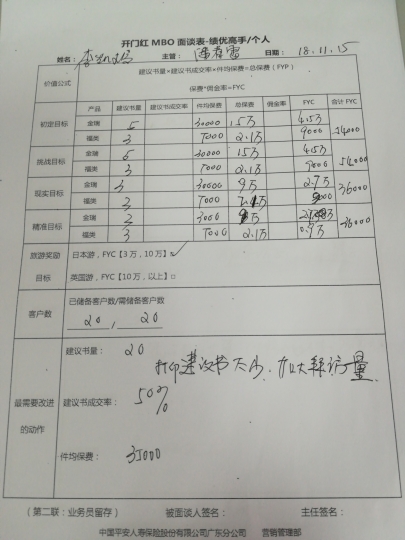 开门红 MBO 面谈表-绩优高手/个人
姓名： 主管： 日期：18.11.15
价值公式
建议书量×建议书成交率×件均保费=总保费（FYP）
保费*佣金率=FYC
产品 建议书量 建议书成交率 件均保费 总保费 佣金率 FYC 合计 FYC
初定目标 金瑞 5 30000 15万 4.5万 54000
福类 3 7000 2.1万 9000
挑战目标 金瑞 5 30000 15万 4.5万 54000
福类 3 7000 2.1万 9000
现实目标 金瑞 3 30000 9万 2.7万 36000
福类 3 7000 2.1万 9000
精准目标 金瑞 3 3000 9万 36000
福类 3 7000 2.1万 0.9万
旅游奖励目标
日本游，FYC【3 万，10 万】☑
英国游，FYC【10 万，以上】□
客户数
已储备客户数/需储备客户数
20 , 20
最需要改进的动作
建议书量：20
打印建议书 加大拜访量
建议书成交率：50%
件均保费：35000
（第二联：业务员留存） 被面谈人签名： 主任签名：
中国平安人寿保险股份有限公司广东分公司 营销管理部